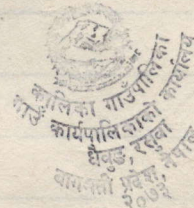 कालिका गाउँपालिका
गाउँ कार्यपालिकाको कार्यालय
धैबुङ, रसुवा
बागमती प्रदेश, नेपाल
२०७३